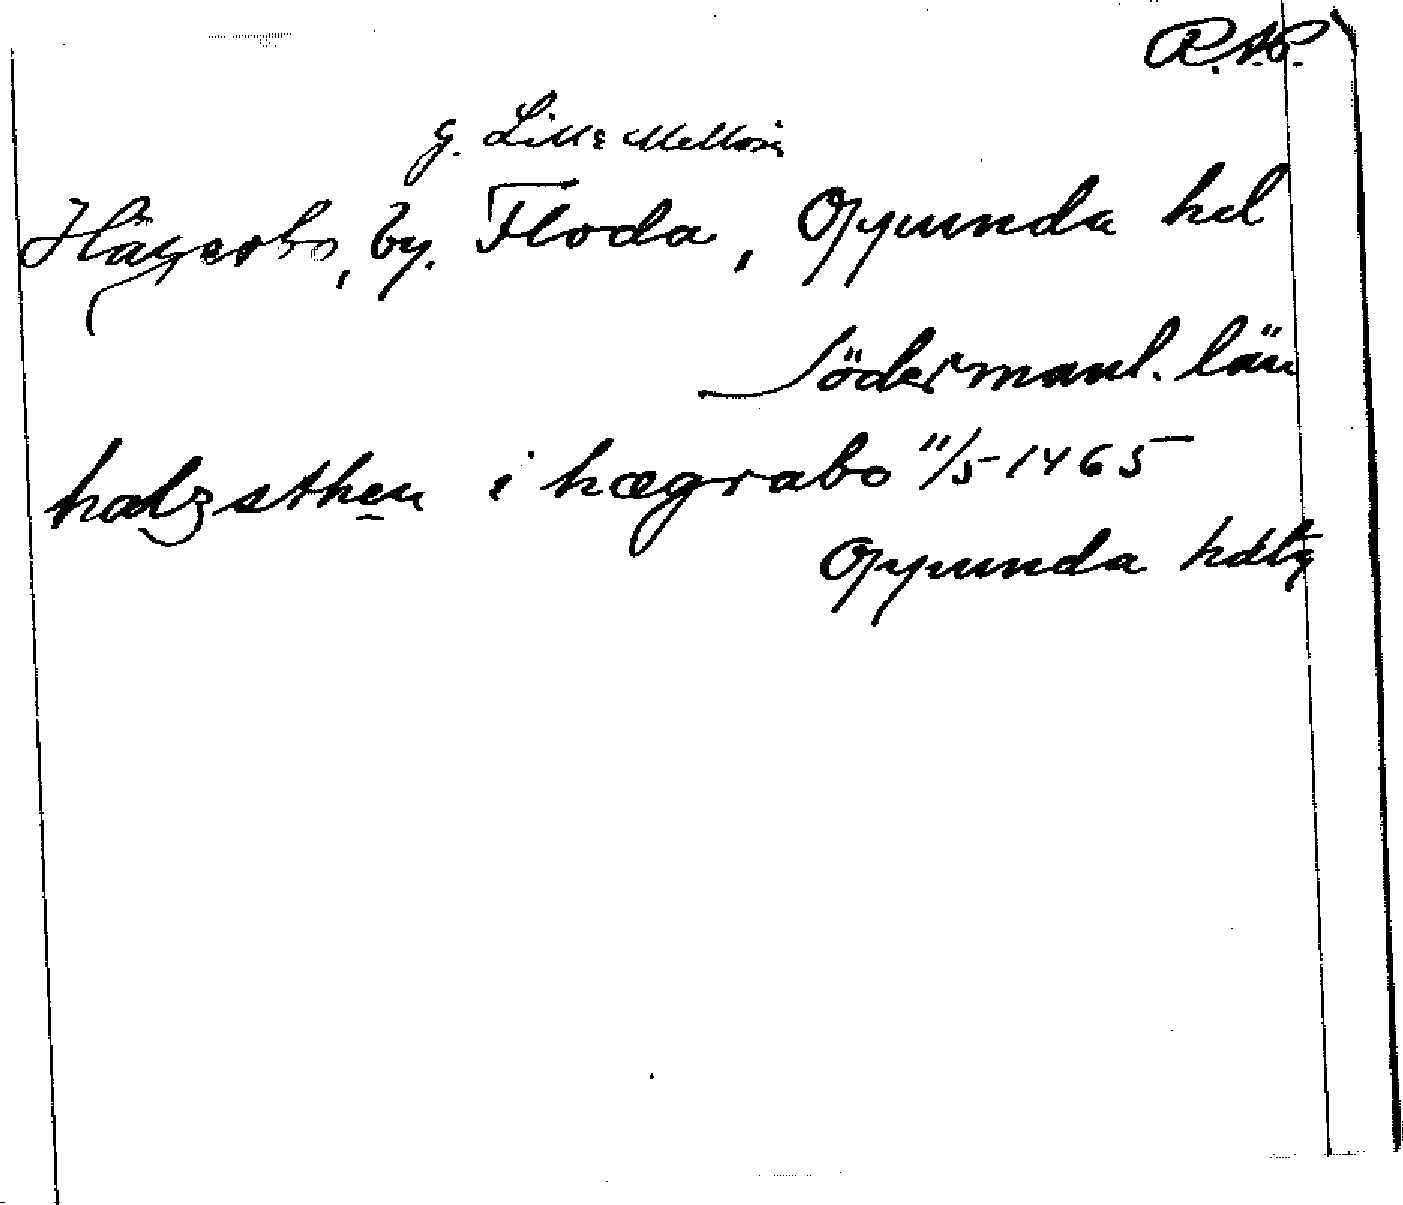 R.A.P.
g. Lilla Mellösa
Hägerbo, by. Floda, Oppunda hd
Södermanl. län
halzsthen i hægrabo 11/5 1465
Oppunda hdtg